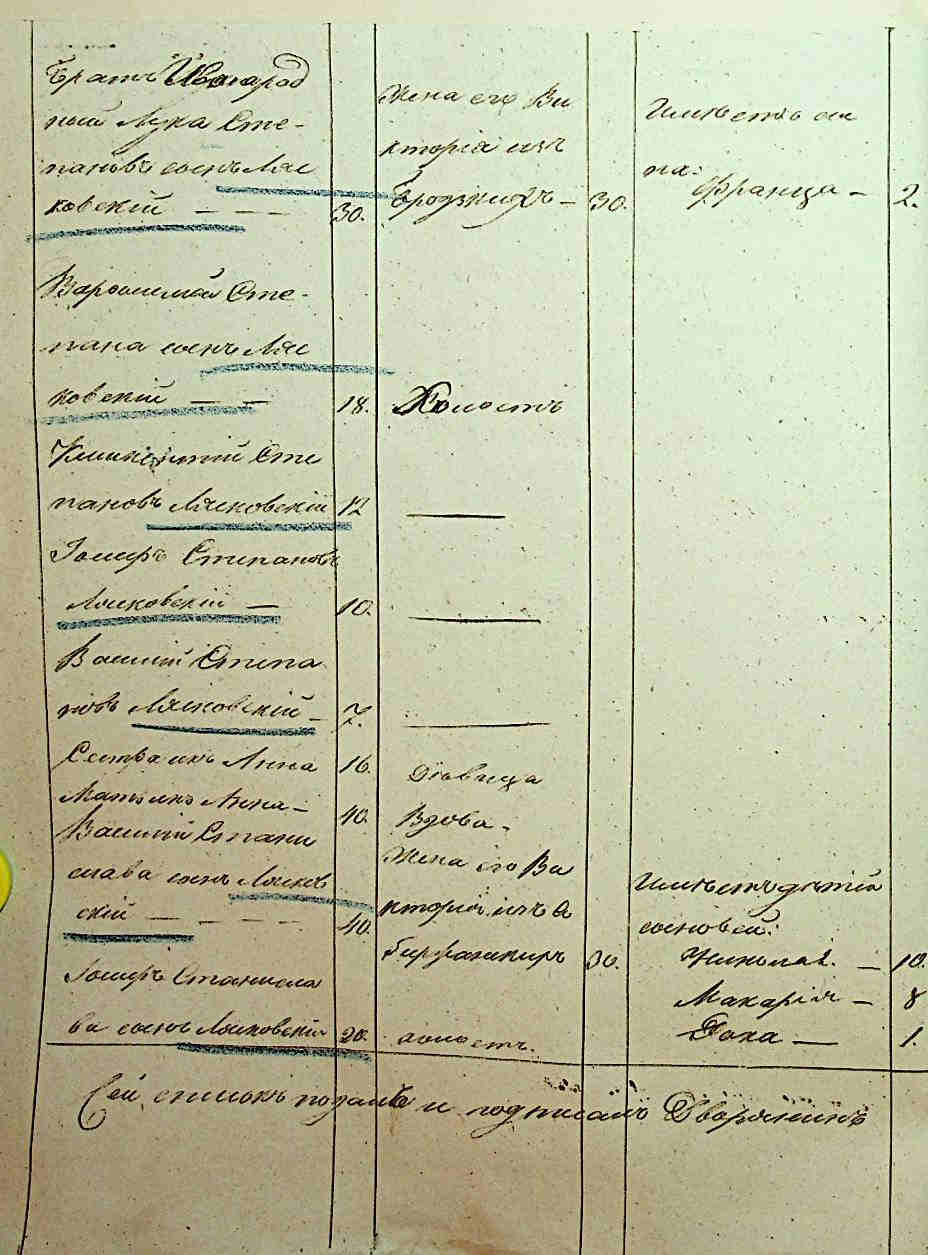 Братъ
ный Лука Сте-
пановъ сынъ Ляс
ковскій — — — 30.
Жена его Ви
кторія изъ
Бродзкихъ — 30.
Имѣетъ сы
на:
Франца — 2.
Варфоломей Сте-
пана сынъ Ляс
ковскій — — 18.
Холостъ
Степановъ Лясковскій 12
Іосифъ Степановъ
Лясковскій — 10.
Василій Степа
новъ Лясковскій — 7.
Сестра ихъ Анна 16.
Дѣвица
Мать ихъ Анна — 40.
Вдова.
Василій Стани
слава сынъ Лясков
скій — — — — 40.
Жена его Ви
кторія изъ
30.
Имѣетъ дѣтей
сыновей:
Николай. — 10.
Макарія — 8
Фока — 1.
Іосифъ Станисла
ва сынъ Лясковскій 20.
холостъ.
Сей списокъ подалъ и подписалъ Дворянинъ